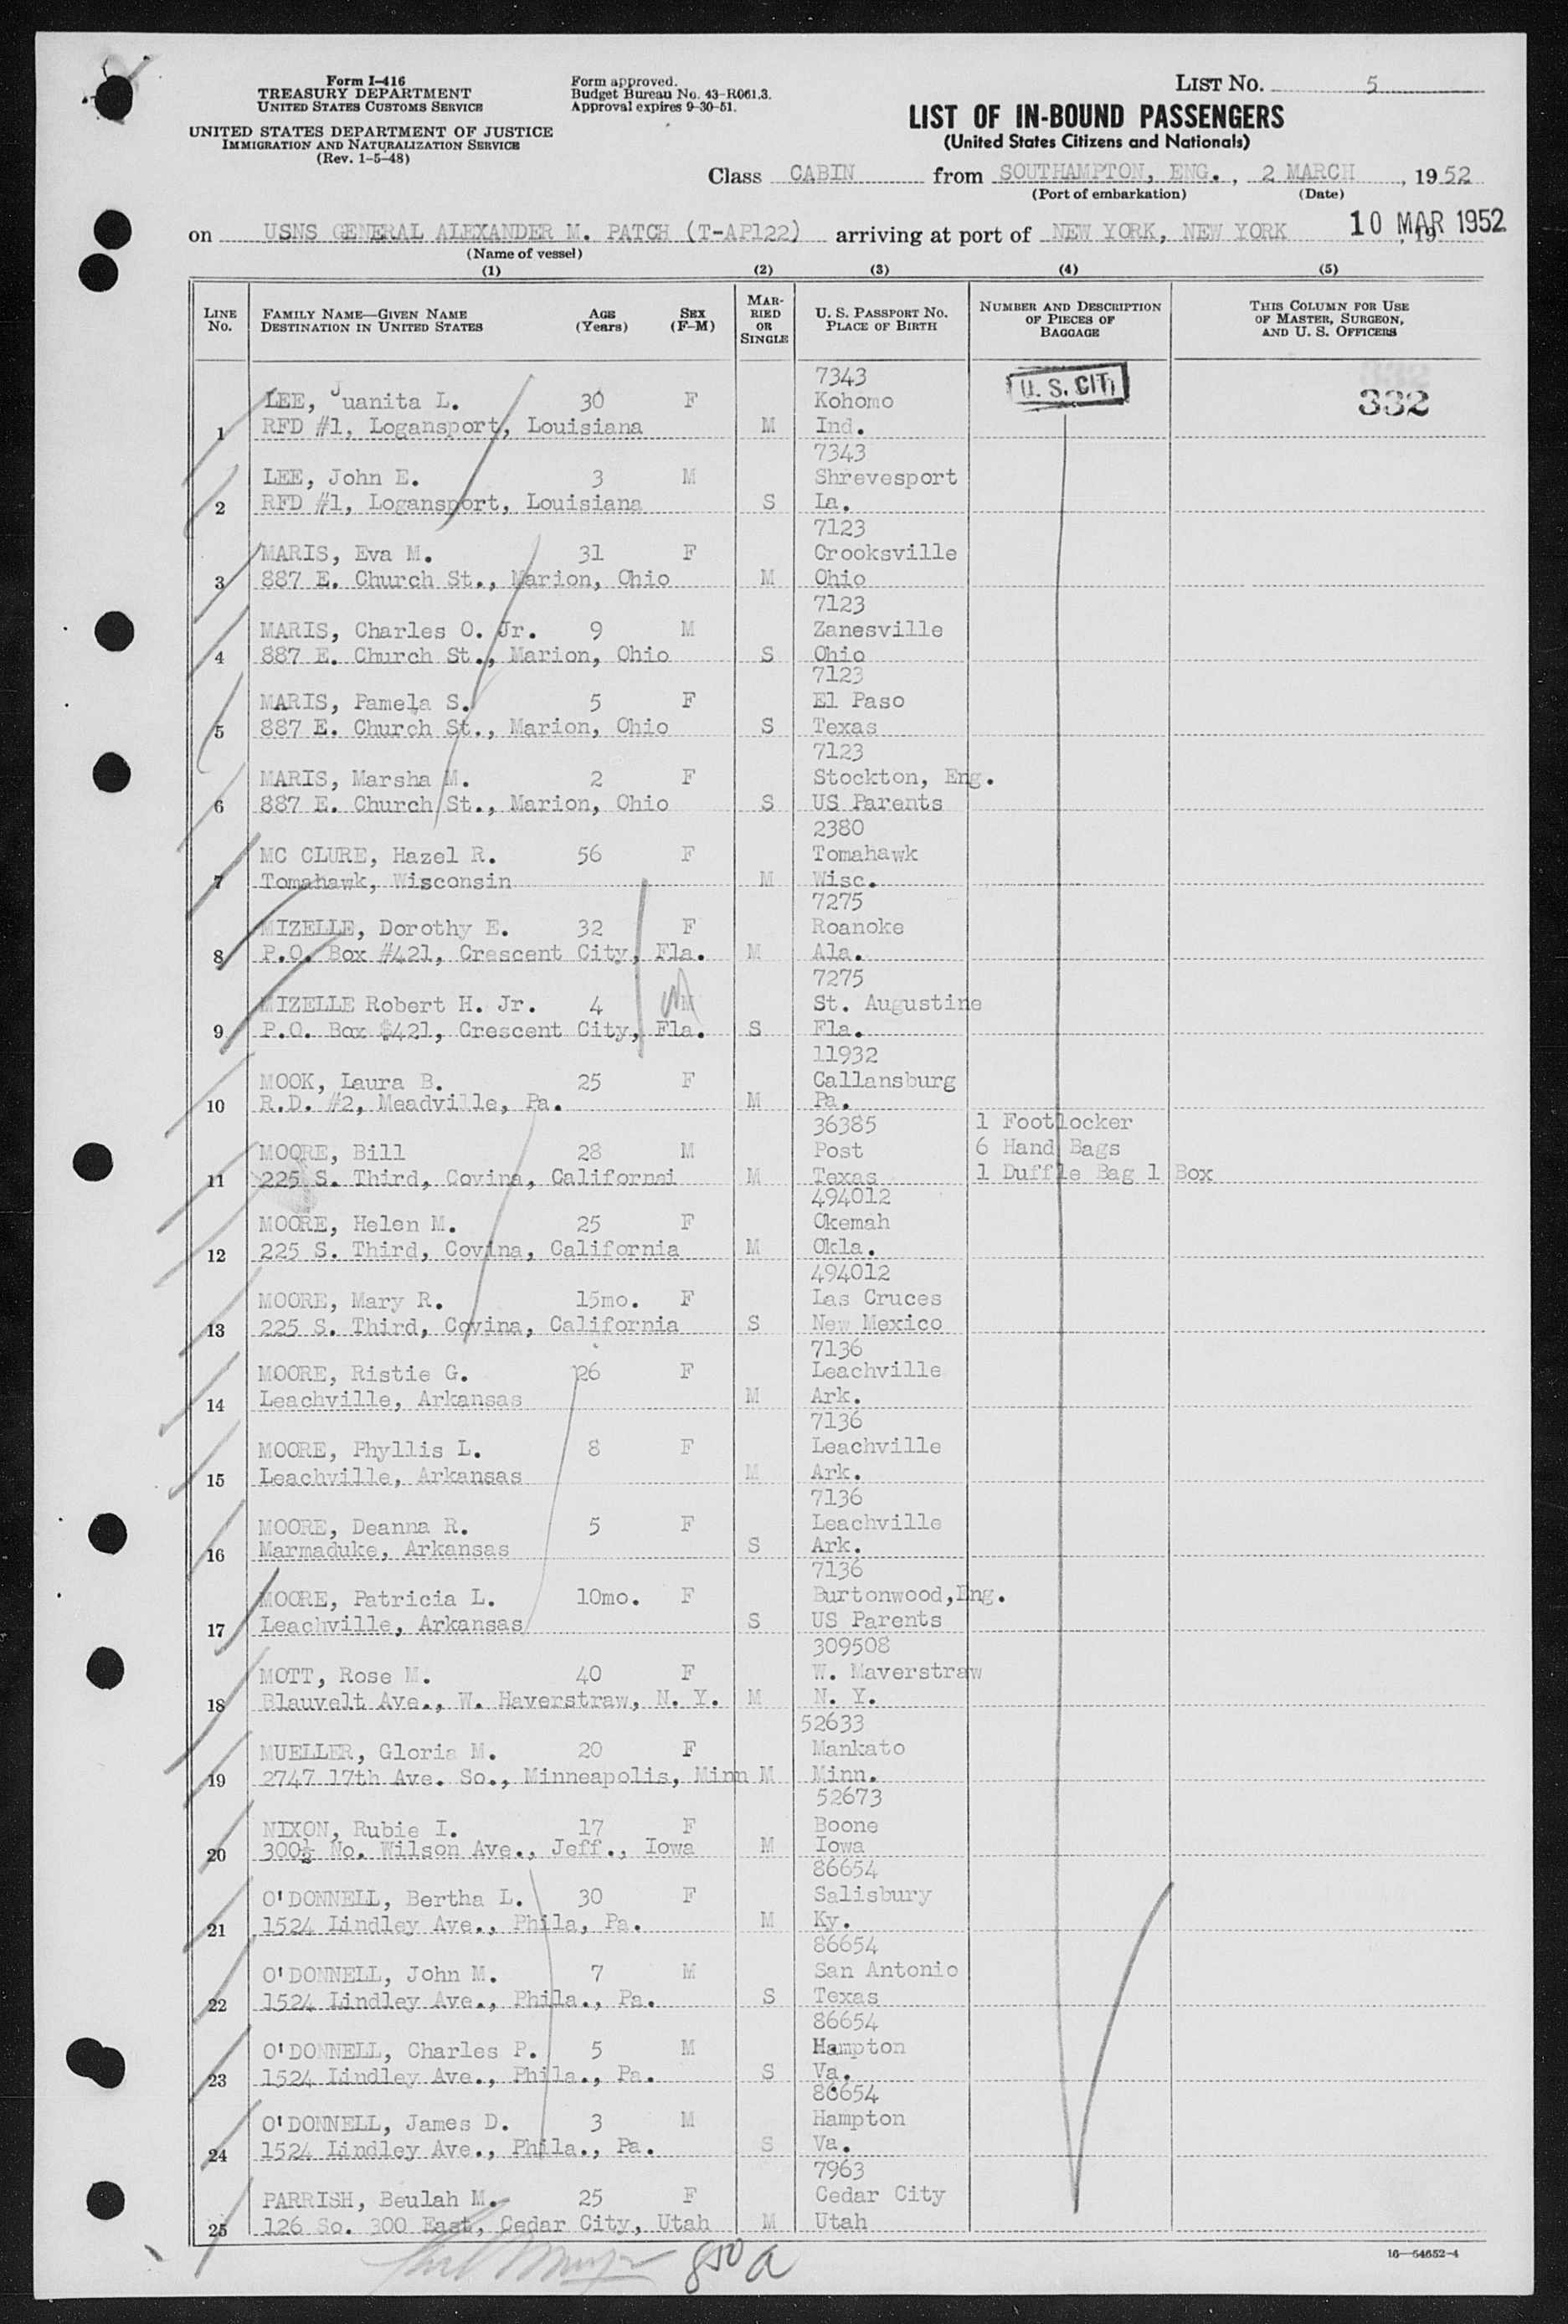 Form I-416
TREASURY DEPARTMENT
UNITED STATES CUSTOMS SERVICE
UNITED STATES DEPARTMENT OF JUSTICE
IMMIGRATION AND NATURALIZATION SERVICE
(Rev. 1-5-48)
Form approved.
Budget Bureau No. 43-R061.3.
Approval expires 9-30-51.
LIST No. 5
LIST OF IN-BOUND PASSENGERS
(United States Citizens and Nationals)
Class CABIN from SOUTHAMPTON, ENG., 2 MARCH, 1952
(Port of embarkation) (Date)
on USNS GENERAL ALEXANDER M. PATCH (T-AP122) arriving at port of NEW YORK, NEW YORK 10 MAR 1952, 19
(Name of vessel)
(1) (2) (3) (4) (5)
LINE No. FAMILY NAME—GIVEN NAME DESTINATION IN UNITED STATES AGE (Years) SEX (F-M) MARRIED OR SINGLE U. S. PASSPORT No. PLACE OF BIRTH NUMBER AND DESCRIPTION OF PIECES OF BAGGAGE THIS COLUMN FOR USE OF MASTER, SURGEON, AND U. S. OFFICERS
7343 U. S. CIT.
LEE, Juanita L. 30 F Kohomo 332
1 RFD #1, Logansport, Louisiana M Ind.
7343
LEE, John E. 3 M Shrevesport
2 RFD #1, Logansport, Louisiana S La.
7123
MARIS, Eva M. 31 F Crooksville
3 887 E. Church St., Marion, Ohio M Ohio
7123
MARIS, Charles O. Jr. 9 M Zanesville
4 887 E. Church St., Marion, Ohio S Ohio
7123
MARIS, Pamela S. 5 F El Paso
5 887 E. Church St., Marion, Ohio S Texas
7123
MARIS, Marsha M. 2 F Stockton, Eng.
6 887 E. Church St., Marion, Ohio S US Parents
2380
MC CLURE, Hazel R. 56 F Tomahawk
7 Tomahawk, Wisconsin M Wisc.
7275
MIZELLE, Dorothy E. 32 F Roanoke
8 P.O. Box #421, Crescent City, Fla. M Ala.
7275
MIZELLE Robert H. Jr. 4 M St. Augustine
9 P.O. Box $421, Crescent City, Fla. S Fla.
11932
MOOK, Laura B. 25 F Callansburg
10 R.D. #2, Meadville, Pa. M Pa.
36385 1 Footlocker
MOORE, Bill 28 M Post 6 Hand Bags
11 225 S. Third, Covina, Californai M Texas 1 Duffle Bag 1 Box
494012
MOORE, Helen M. 25 F Okemah
12 225 S. Third, Covina, California M Okla.
494012
MOORE, Mary R. 15mo. F Las Cruces
13 225 S. Third, Covina, California S New Mexico
7136
MOORE, Ristie G. 26 F Leachville
14 Leachville, Arkansas M Ark.
7136
MOORE, Phyllis L. 8 F Leachville
15 Leachville, Arkansas M Ark.
7136
MOORE, Deanna R. 5 F Leachville
16 Marmaduke, Arkansas S Ark.
7136
MOORE, Patricia L. 10mo. F Burtonwood,Eng.
17 Leachville, Arkansas S US Parents
309508
MOTT, Rose M. 40 F W. Maverstraw
18 Blauvelt Ave., W. Haverstraw, N. Y. M N. Y.
52633
MUELLER, Gloria M. 20 F Mankato
19 2747 17th Ave. So., Minneapolis, Minn M Minn.
52673
NIXON, Rubie I. 17 F Boone
20 300½ No. Wilson Ave., Jeff., Iowa M Iowa
86654
O'DONNELL, Bertha L. 30 F Salisbury
21 1524 Lindley Ave., Phila, Pa. M Ky.
86654
O'DONNELL, John M. 7 M San Antonio
22 1524 Lindley Ave., Phila., Pa. S Texas
86654
O'DONNELL, Charles P. 5 M Hampton
23 1524 Lindley Ave., Phila., Pa. S Va.
86654
O'DONNELL, James D. 3 M Hampton
24 1524 Lindley Ave., Phila., Pa. S Va.
7963
PARRISH, Beulah M. 25 F Cedar City
25 126 So. 300 East, Cedar City, Utah M Utah
850 a
16—54652-4